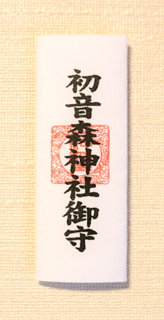 初音森神社御守